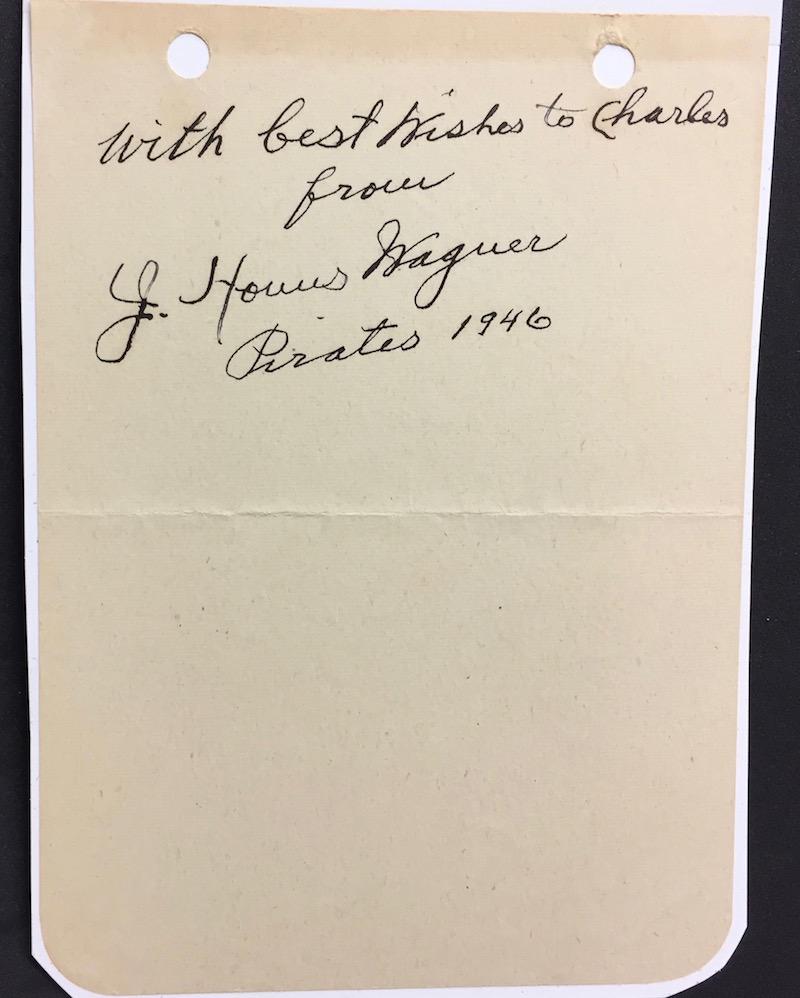 with best Wishes to Charles
from
J. Honus Wagner
Pirates 1946